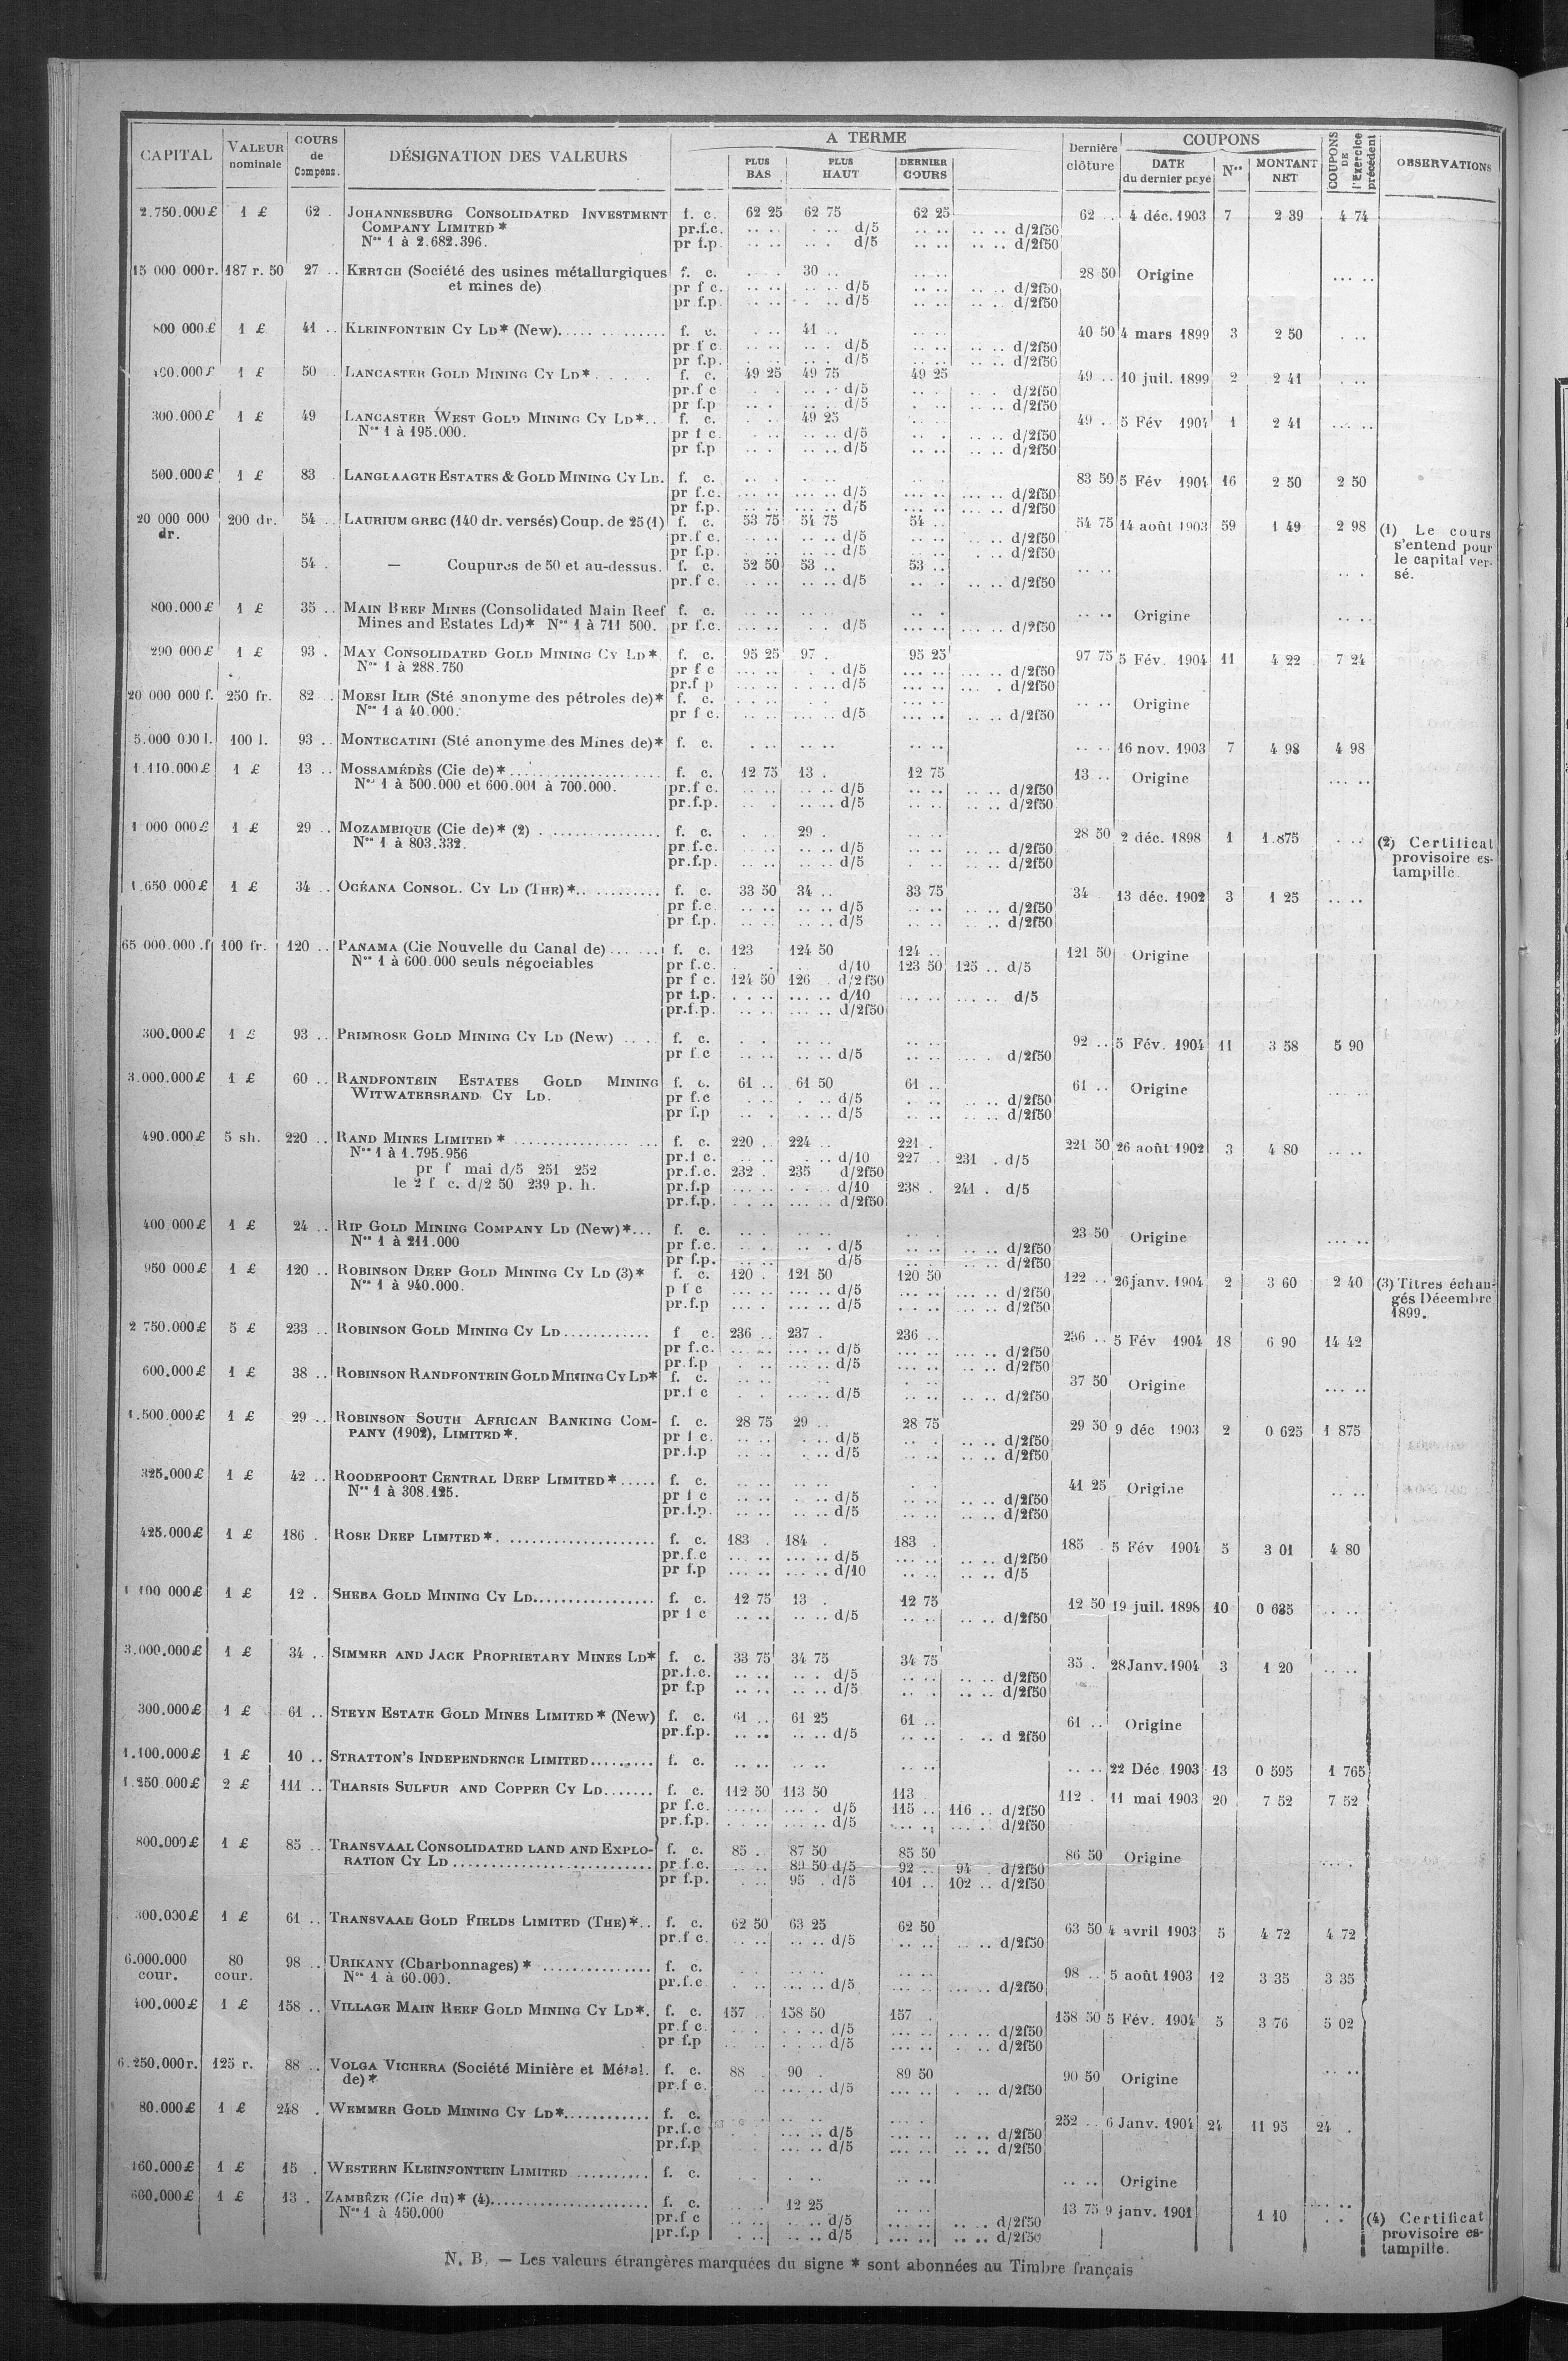 CAPITAL | VALEUR nominale | COURS de Compens. | DÉSIGNATION DES VALEURS | A TERME | PLUS BAS | PLUS HAUT | DERNIER COURS | Dernière clôture | COUPONS | DATE du dernier payé | Nos | MONTANT NET | COUPONS DE l'Exercice précédent | OBSERVATIONS
2.750.000 £ 1 £ 62 . JOHANNESBURG CONSOLIDATED INVESTMENT f. c. 62 25 62 75 62 25 62 . 4 déc. 1903 7 2 39 4 74
COMPANY LIMITED * pr.f.c. .. .. . .. d/5 .. .. .. .. d/2f50
Nos 1 à 2.682.396. pr f.p. .. .. .. . d/5 .. .. .. .. d/2f50
15 000 000 r. 187 r. 50 27 .. KERTCH (Société des usines métallurgiques f. c. 30 .. 28 50 Origine
et mines de) pr f c. .. .. d/5 .. .. d/2f50
pr f.p. .. .. d/5 .. .. d/2f50
800 000 £ 1 £ 41 .. KLEINFONTEIN CY LD* (New). f. c. 41 .. 40 50 4 mars 1899 3 2 50
pr.f c d/5 d/2f50
pr f.p. d/5 d/2f50
1 £ 50 .. LANCASTER GOLD MINING CY LD* f. c. 49 25 49 75 49 25 49 .. 10 juil. 1899 2 2 41
pr.f c d/5 d/2f50
pr f.p d/5 d/2f50
300.000 £ 1 £ 49 LANCASTER WEST GOLD MINING CY LD*.. f. c. 49 25 49 .. 5 Fév 1904 1 2 41
Nos 1 à 195.000. pr f c. d/5 d/2f50
pr f.p d/5 d/2f50
500.000 £ 1 £ 83 . LANGLAAGTE ESTATES & GOLD MINING CY LD. f. c. 83 50 5 Fév 1904 16 2 50 2 50
pr f.c. d/5 d/2f50
pr f.p. d/5 d/2f50
20 000 000 dr. 200 dr. 54 .. LAURIUM GREC (140 dr. versés) Coup. de 25 (1) f. c. 53 75 54 75 54 .. 54 75 14 août 1903 59 1 49 2 98 (1) Le cours s'entend pour le capital versé.
pr.f c. d/5 d/2f50
pr f.p. d/5 d/2f50
54 . — Coupures de 50 et au-dessus. f. c. 52 50 53 .. 53 ..
pr.f c. d/5 d/2f50
800.000 £ 1 £ 35 .. MAIN REEF MINES (Consolidated Main Reef f. c. Origine
Mines and Estates Ld)* Nos 1 à 711 500. pr f.c. d/5 d/2f50
290 000 £ 1 £ 93 . MAY CONSOLIDATED GOLD MINING CY LD* f. c. 95 25 97 . 95 25 97 75 5 Fév. 1904 11 4 22 7 24
Nos 1 à 288.750 pr f c d/5 d/2f50
pr.f p d/5 d/2f50
20 000 000 f. 250 fr. 82 .. MOESI ILIR (Sté anonyme des pétroles de)* f. c. Origine
Nos 1 à 40.000. pr f c. d/5 d/2f50
5.000 000 l. 100 l. 93 .. MONTECATINI (Sté anonyme des Mines de)* f. c. 16 nov. 1903 7 4 98 4 98
1.110.000 £ 1 £ 13 .. MOSSAMÉDÈS (Cie de)* f. c. 12 75 13 . 12 75 13 .. Origine
Nos 1 à 500.000 et 600.001 à 700.000. pr.f c. d/5 d/2f50
pr.f.p. d/5 d/2f50
1 000 000 £ 1 £ 29 .. MOZAMBIQUE (Cie de)* (2) f. c. 29 . 28 50 2 déc. 1898 1 1.875 (2) Certificat provisoire estampille.
Nos 1 à 803.332. pr f.c. d/5 d/2f50
pr.f.p. d/5 d/2f50
1.650 000 £ 1 £ 34 .. OCÉANA CONSOL. CY LD (THE)* f. c. 33 50 34 .. 33 75 34 13 déc. 1902 3 1 25
pr f.c d/5 d/2f50
pr f.p. d/5 d/2f50
65 000.000 .f 100 fr. 120 .. PANAMA (Cie Nouvelle du Canal de) f. c. 123 124 50 124 .. 121 50 Origine
Nos 1 à 600.000 seuls négociables pr f.c. d/10 123 50 125 .. d/5
pr f c. 124 50 126 . d/2f50
pr f.p. d/10 d/5
pr.f.p. d/2f50
300.000 £ 1 £ 93 .. PRIMROSE GOLD MINING CY LD (New) f. c. 92 .. 5 Fév. 1904 11 3 58 5 90
pr f c d/5 d/2f50
3.000.000 £ 1 £ 60 .. RANDFONTEIN ESTATES GOLD MINING f. c. 61 .. 61 50 61 .. 61 .. Origine
WITWATERSRAND CY LD. pr f.c d/5 d/2f50
pr f.p d/5 d/2f50
490.000 £ 5 sh. 220 .. RAND MINES LIMITED * f. c. 220 . 224 .. 221 . 221 50 26 août 1902 3 4 80
Nos 1 à 1.795.956 pr.f c. d/10 227 . 231 . d/5
pr f mai d/5 251 252 pr.f.c. 232 . 235 d/2f50
le 2 f c. d/2 50 239 p. h. pr.f.p d/10 238 . 241 . d/5
pr.f.p. d/2f50
400.000 £ 1 £ 24 .. RIP GOLD MINING COMPANY LD (New)*... f. c. 23 50 Origine
Nos 1 à 211.000 pr f.c. d/5 d/2f50
pr f.p. d/5 d/2f50
950 000 £ 1 £ 120 .. ROBINSON DEEP GOLD MINING CY LD (3)* f. c. 120 . 121 50 120 50 122 .. 26 janv. 1904 2 3 60 2 40 (3) Titres échangés Décembre 1899.
Nos 1 à 940.000. p f c d/5 d/2f50
pr.f.p d/5 d/2f50
2 750.000 £ 5 £ 233 .. ROBINSON GOLD MINING CY LD f c. 236 .. 237 . 236 .. 236 .. 5 Fév 1904 18 6 90 14 42
pr f.c. d/5 d/2f50
pr.f.p d/5 d/2f50
600.000 £ 1 £ 38 .. ROBINSON RANDFONTEIN GOLD MINING CY LD* f. c. 37 50 Origine
pr.f c d/5 d/2f50
1.500.000 £ 1 £ 29 .. ROBINSON SOUTH AFRICAN BANKING COM- f. c. 28 75 29 .. 28 75 29 50 9 déc 1903 2 0 625 1 875
PANY (1902), LIMITED*. pr f c. d/5 d/2f50
pr.f.p d/5 d/2f50
325.000 £ 1 £ 42 .. ROODEPOORT CENTRAL DEEP LIMITED* f. c. 41 25 Origine
Nos 1 à 308.125. pr f c d/5 d/2f50
pr.f.p. d/5 d/2f50
425.000 £ 1 £ 186 . ROSE DEEP LIMITED*. f. c. 183 . 184 . 183 . 185 . 5 Fév 1904 5 3 01 4 80
pr.f.c d/5 d/2f50
pr f.p d/10 d/5
1 100 000 £ 1 £ 12 . SHEBA GOLD MINING CY LD f. c. 12 75 13 . 12 75 12 50 19 juil. 1898 10
pr f c d/5 d/2f50
3.000.000 £ 1 £ 34 .. SIMMER AND JACK PROPRIETARY MINES LD* f. c. 33 75 34 75 34 75 35 . 28 Janv. 1904 3 1 20
pr.f.c. d/5 d/2f50
pr f.p d/5 d/2f50
300.000 £ 1 £ 61 .. STEYN ESTATE GOLD MINES LIMITED * (New) f. c. 61 .. 61 25 61 .. 61 .. Origine
pr.f.p. d/5 d 2f50
1.100.000 £ 1 £ 10 .. STRATTON'S INDEPENDENCE LIMITED f. c. 22 Déc 1903 13 0 595 1 765
1.250 000 £ 2 £ 111 .. THARSIS SULFUR AND COPPER CY LD f. c. 112 50 113 50 113 112 . 11 mai 1903 20 7 52 7 52
pr f.c. d/5 115 .. 116 .. d/2f50
pr.f.p. d/5 d/2f50
800.000 £ 1 £ 85 .. TRANSVAAL CONSOLIDATED LAND AND EXPLO- f. c. 85 . 87 50 85 50 86 50 Origine
RATION CY LD pr f.c. 89 50 d/5 92 .. 94 . d/2f50
pr f.p. 95 . d/5 101 .. 102 .. d/2f50
300.000 £ 1 £ 61 .. TRANSVAAL GOLD FIELDS LIMITED (THE)*.. f. c. 62 50 63 25 62 50 63 50 4 avril 1903 5 4 72 4 72
pr.f c. d/5 d/2f50
6.000.000 cour. 80 cour. 98 .. URIKANY (Charbonnages) * f. c. 98 .. 5 août 1903 12 3 35 3 35
Nos 1 à 60.000. pr.f.c d/5 d/2f50
400.000 £ 1 £ 158 .. VILLAGE MAIN REEF GOLD MINING CY LD*. f. c. 157 158 50 157 . 158 50 5 Fév. 1904 5 3 76 5 02
pr.f c d/5 d/2f50
pr f.p d/5 d/2f50
6.250.000 r. 125 r. 88 .. VOLGA VICHERA (Société Minière et Métal. f. c. 88 .. 90 . 89 50 90 50 Origine
de)* pr.f c. d/5 d/2f50
80.000 £ 1 £ 248 . WEMMER GOLD MINING CY LD* f. c. 252 .. 6 Janv. 1904 24 11 95 24 .
pr.f.c d/5 d/2f50
pr.f.p d/5 d/2f50
160.000 £ 1 £ 15 . WESTERN KLEINFONTEIN LIMITED f. c. Origine
600.000 £ 1 £ 13 . ZAMBÈZE (Cie du)* (4) f. c. 12 25 13 75 9 janv. 1901 1 10 (4) Certificat provisoire estampille.
Nos 1 à 450.000 pr.f c d/5 d/2f50
pr.f.p d/5 d/2f50
N. B. — Les valeurs étrangères marquées du signe * sont abonnées au Timbre français